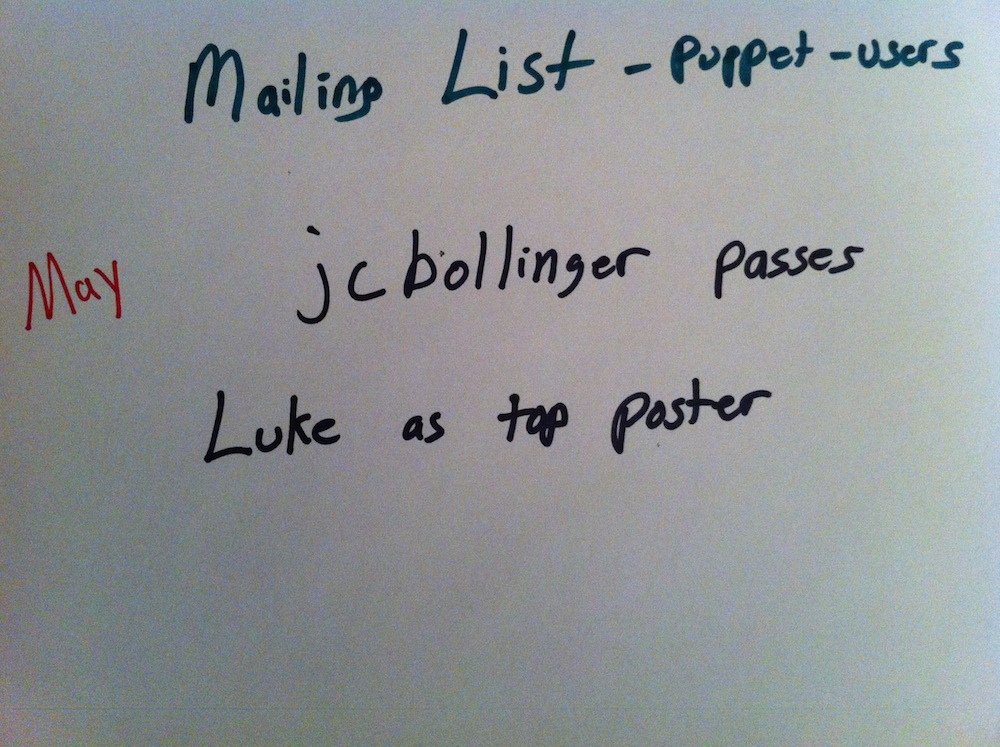 Mailing List - puppet-users
May jcbollinger passes
Luke as top poster